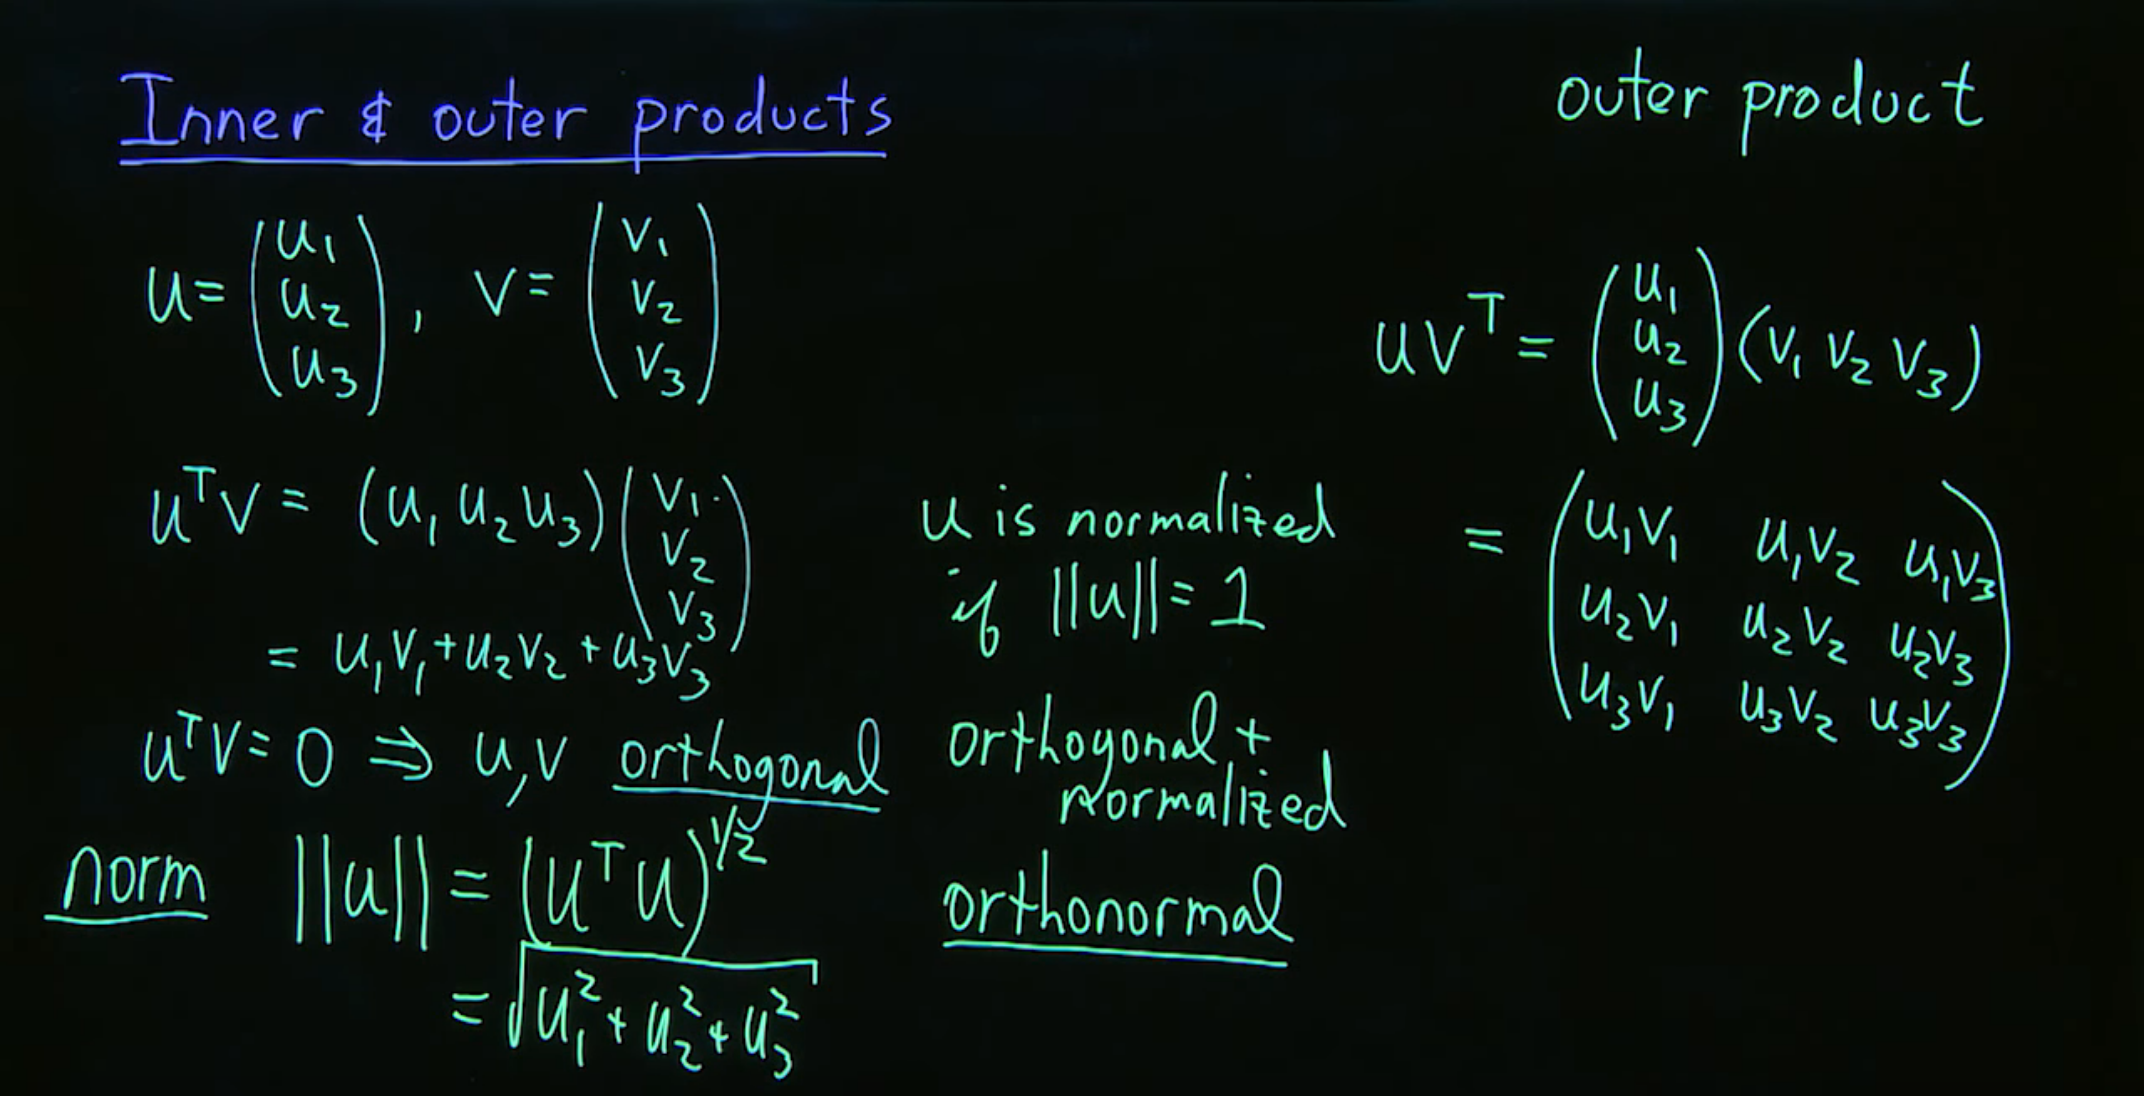 Inner & outer products
u = (u₁ u₂ u₃), v = (v₁ v₂ v₃)
uᵀv = (u₁ u₂ u₃) (v₁ v₂ v₃)
= u₁v₁ + u₂v₂ + u₃v₃
uᵀv = 0 ⇒ u,v orthogonal
norm ||u|| = (uᵀu)^1/2
= √(u₁² + u₂² + u₃²)
u is normalized
if ||u|| = 1
orthogonal +
normalized
orthonormal
outer product
uvᵀ = (u₁ u₂ u₃) (v₁ v₂ v₃)
= (u₁v₁ u₁v₂ u₁v₃
u₂v₁ u₂v₂ u₂v₃
u₃v₁ u₃v₂ u₃v₃)